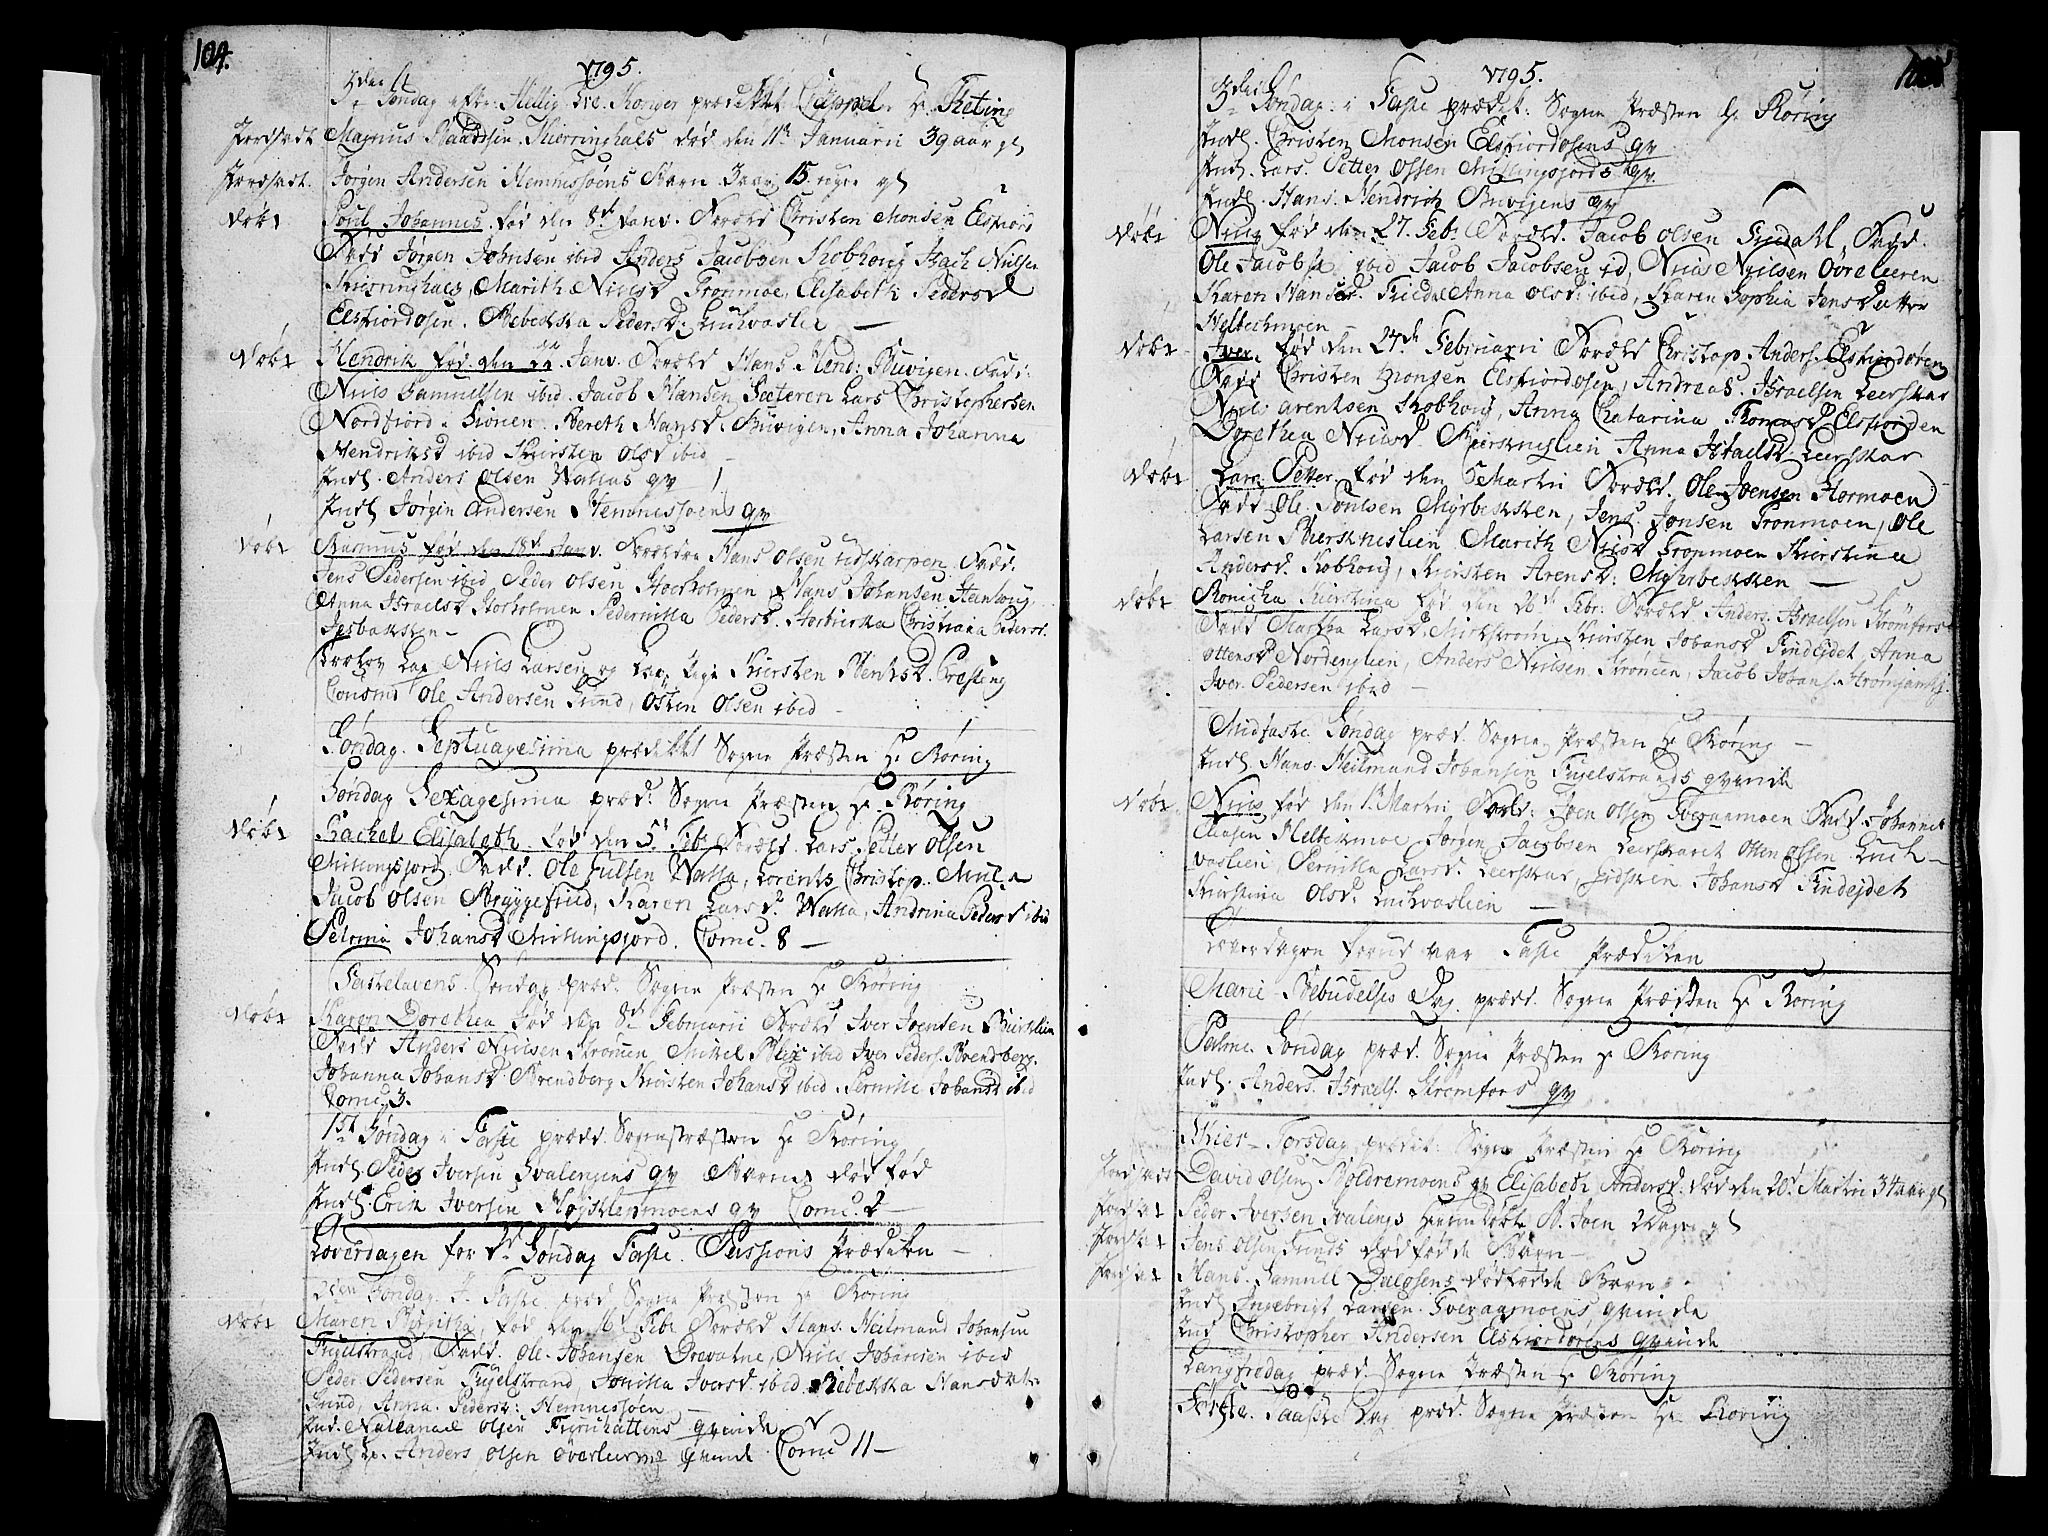 104.
1795.
3die Søndag efter Hellig Tre Konger prædikket Cappel. Hr. Theting
Jordfæst Magnus Kierringhals død den 11te Januarii 39 aar gl
Jordfæst. Jørgen Andersen Hemnessøens Barn 3 aar 15 uger gl
døbt Poul Johannes fød den 8de Janv. Foræld Christen Monsen Elsfiord
Fadd Jørgen Johnsen ibid Anders Jacobsen Kobhoug Isach Nielsen
Kierringhals, Marith Nielsd Tronmoe, Elisabeth Pedersd
Elsfiordosen. Rebekka Pedersd. Luchvaslie —
døbt Hendrik fød den 22 Janv. Foræld Hans Hend: Buvigen. Fadd:
Niels Samuelsen ibid. Jacob Hansen Sæteren Lars Christophersen
Nordfiord Sionen Bereth Hansd. Buvigen, Anna Johanna
Hendriksd ibid Kiersten Olsd ibid —
Indl. Anders Olsen Wallas qv
Indl Jørgen Andersen Hemnessøens qv
døbt Rasmus fød den 18de Janv. Forældre Hans Olsen Udskarpen. Fadd.
Jens Pedersen ibid Peder Olsen Storholmen Hans Johansen Stenhoug
Anna Israelsd Storholmen Pedernilla Pedersd. Christiana Pedersd.
Jesbakken —
Trolov Niels Larsen og Kiersten Bentsd.
Ole Andersen Sund, Osten Olsen ibid —
Søndag. Septuagesima prædikket Sogne Præsten Hr Røring
Søndag Sexagesima præd: Sogne Præsten Hr. Røring
døbt Rachel Elisabeth fød den 5te Feb. Foræld. Lars Petter Olsen
Millingsjord Fadd. Ole Julsen Walla, Lorents Christop.
Jacob Olsen Bryggefield, Karen Larsd. Walla, Andrina Pedersd ibid
Pelonie Johansd Millingsjord. Comu. 8 —
Fastelavens Søndag præd. Sogne Præsten Hr Røring
døbt Karen Dorethea fød den 8de Februarii Foræld Iver Joensen
Fadd Anders Nielsen Stromen Mikkel Blix ibid Iver Peders. Brendberg.
Johanna Johansd Brendberg Kiersten Johansd ibid Pernille Johansd ibid
Comu. 3.
1ste Søndag i Faste prædd. Sognepræsten Hr Røring
Indl Peder Iversen Svalengens qv Barnet død fød
Indl. Erik Iversen qv Comu. 2 —
Løverdagen for 2d. Søndag Faste. Passions Prædiken —
2den Søndag I Faste præd Sogne Præsten Hr Røring
døbt Maren Birgitha, fød den 16de Feb. Foræld Hans Heilmand Johansen
Fuglstrand, Fadd. Ole Johansen Drevatne, Niels Johansen ibid
Peder Pedersen Fuglstrand, Jonilla Iversd ibid Rebekka Hansdatter
Sund, Anna Pedersd: Hemnessøen —
Ind. Nathanael Olsen qvinde
Indl Hr. Anders Olsen Øverleirens qvinde Comu 11 —
105
1795.
3die Søndag: i Faste prædik: Sogne Præsten Hr Røring
Indl. Christen Monsen Elsfiordosens qv
Ind. Lars. Petter Olsen Millingsjords qv.
Indl. Hans. Hendrich Buvigens qv
døbt Niels fød den 27. Feb. Foræld. Jacob Olsen Fuedahl, Fadd.
Ole Jacobs. ibid Jacob Jacobsen id, Niels Nielsen Øvreleeren
Karen Hansd. Anna Olsd: ibid, Karen Sophia Jensdatter
Helbechmoen —
døbt Iver. fød den 24de Februarii Foræld Christop. Anders. Elsfiordosen
Fadd Christen Monsen Elsfiordosen, Andreas. Israelsen Leerskar
Niels Arentsen Kobhoug, Anna Chatarina Thomasd Elsfiorden
Dorethea Nielsd Anna Israelsd. Leerskar
døbt Lars Petter fød den 5 Martii Foræld. Ole Joensen Stormoen
Fadd Ole Poulsen Myrbekken, Jens Jonsen Tronmoen, Ole
Larsen Marith Nielsd Tronmoen Kierstina
Andersd. Kobhoug, Kiersten Arensd: Myrbekken —
døbt Ronicha Kierstina fød den 26de Febr. Foræld Anders. Israelsen Strømfors
Fadd Martha Larsd. Kiersten Johansd Findeidet, Anna
Ottensd Nordenglien, Anders Nielsen Stromen, Jacob Johans.
Iver Pedersen ibid —
Midfaste Søndag præd. Sogne Præsten Hr Røring —
Indl Hans Heilmand Johansen Fuglstrands qvinde
døbt Niels fød den 1te Martii Foræld: Joen Olsen Tveraamoen Fadd Johannes
Helbekmoe Jørgen Jacobsen Leerskaret Otten Olsen Luch-
vaslien, Pernilla Larsd. Leerskar, Sidsken Johansd Findeidet
Kierstina Olsd: Luchvaslien —
Løverdagen forud var Faste Prædiken
Marie Bebudelses Dag prædd. Sogne Præsten Hr Røring
Palme Søndag præd. Sogne Præsten Hr Røring
Indl. Anders. Israels. Strømfors qv
Skier-Torsdag prædik: Sogne Præsten Hr Røring
Jordfæst David Olsen Boldremoens qv Elisabeth Andersd. død den 20de Martii 34 aar gl
Jordfæst Peder Iversen Svalengs hiemmedøbte B. Joen 2 Dage gl
Jordfæst Jens Olsen Sunds dødfødde Barn —
Jordfæst Hans. Samuel dødfødde Barn
Indl Ingebrigt Larsen Tveraamoens qvinde
Ind. Christopher Andersen Elsfiordosens qvinde
Langfredag præd. Sogne Præsten Hr Røring
Første Paaske Dag præd. Sogne Præsten Hr Røring